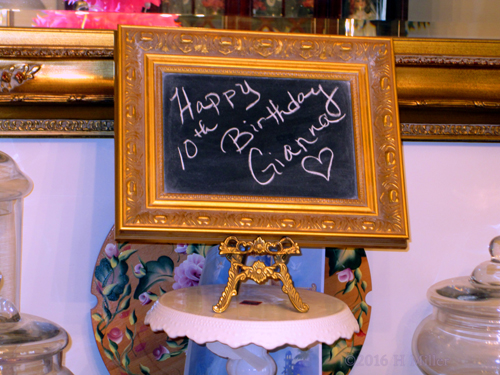 Happy
10th Birthday
Gianna ♡
©2016